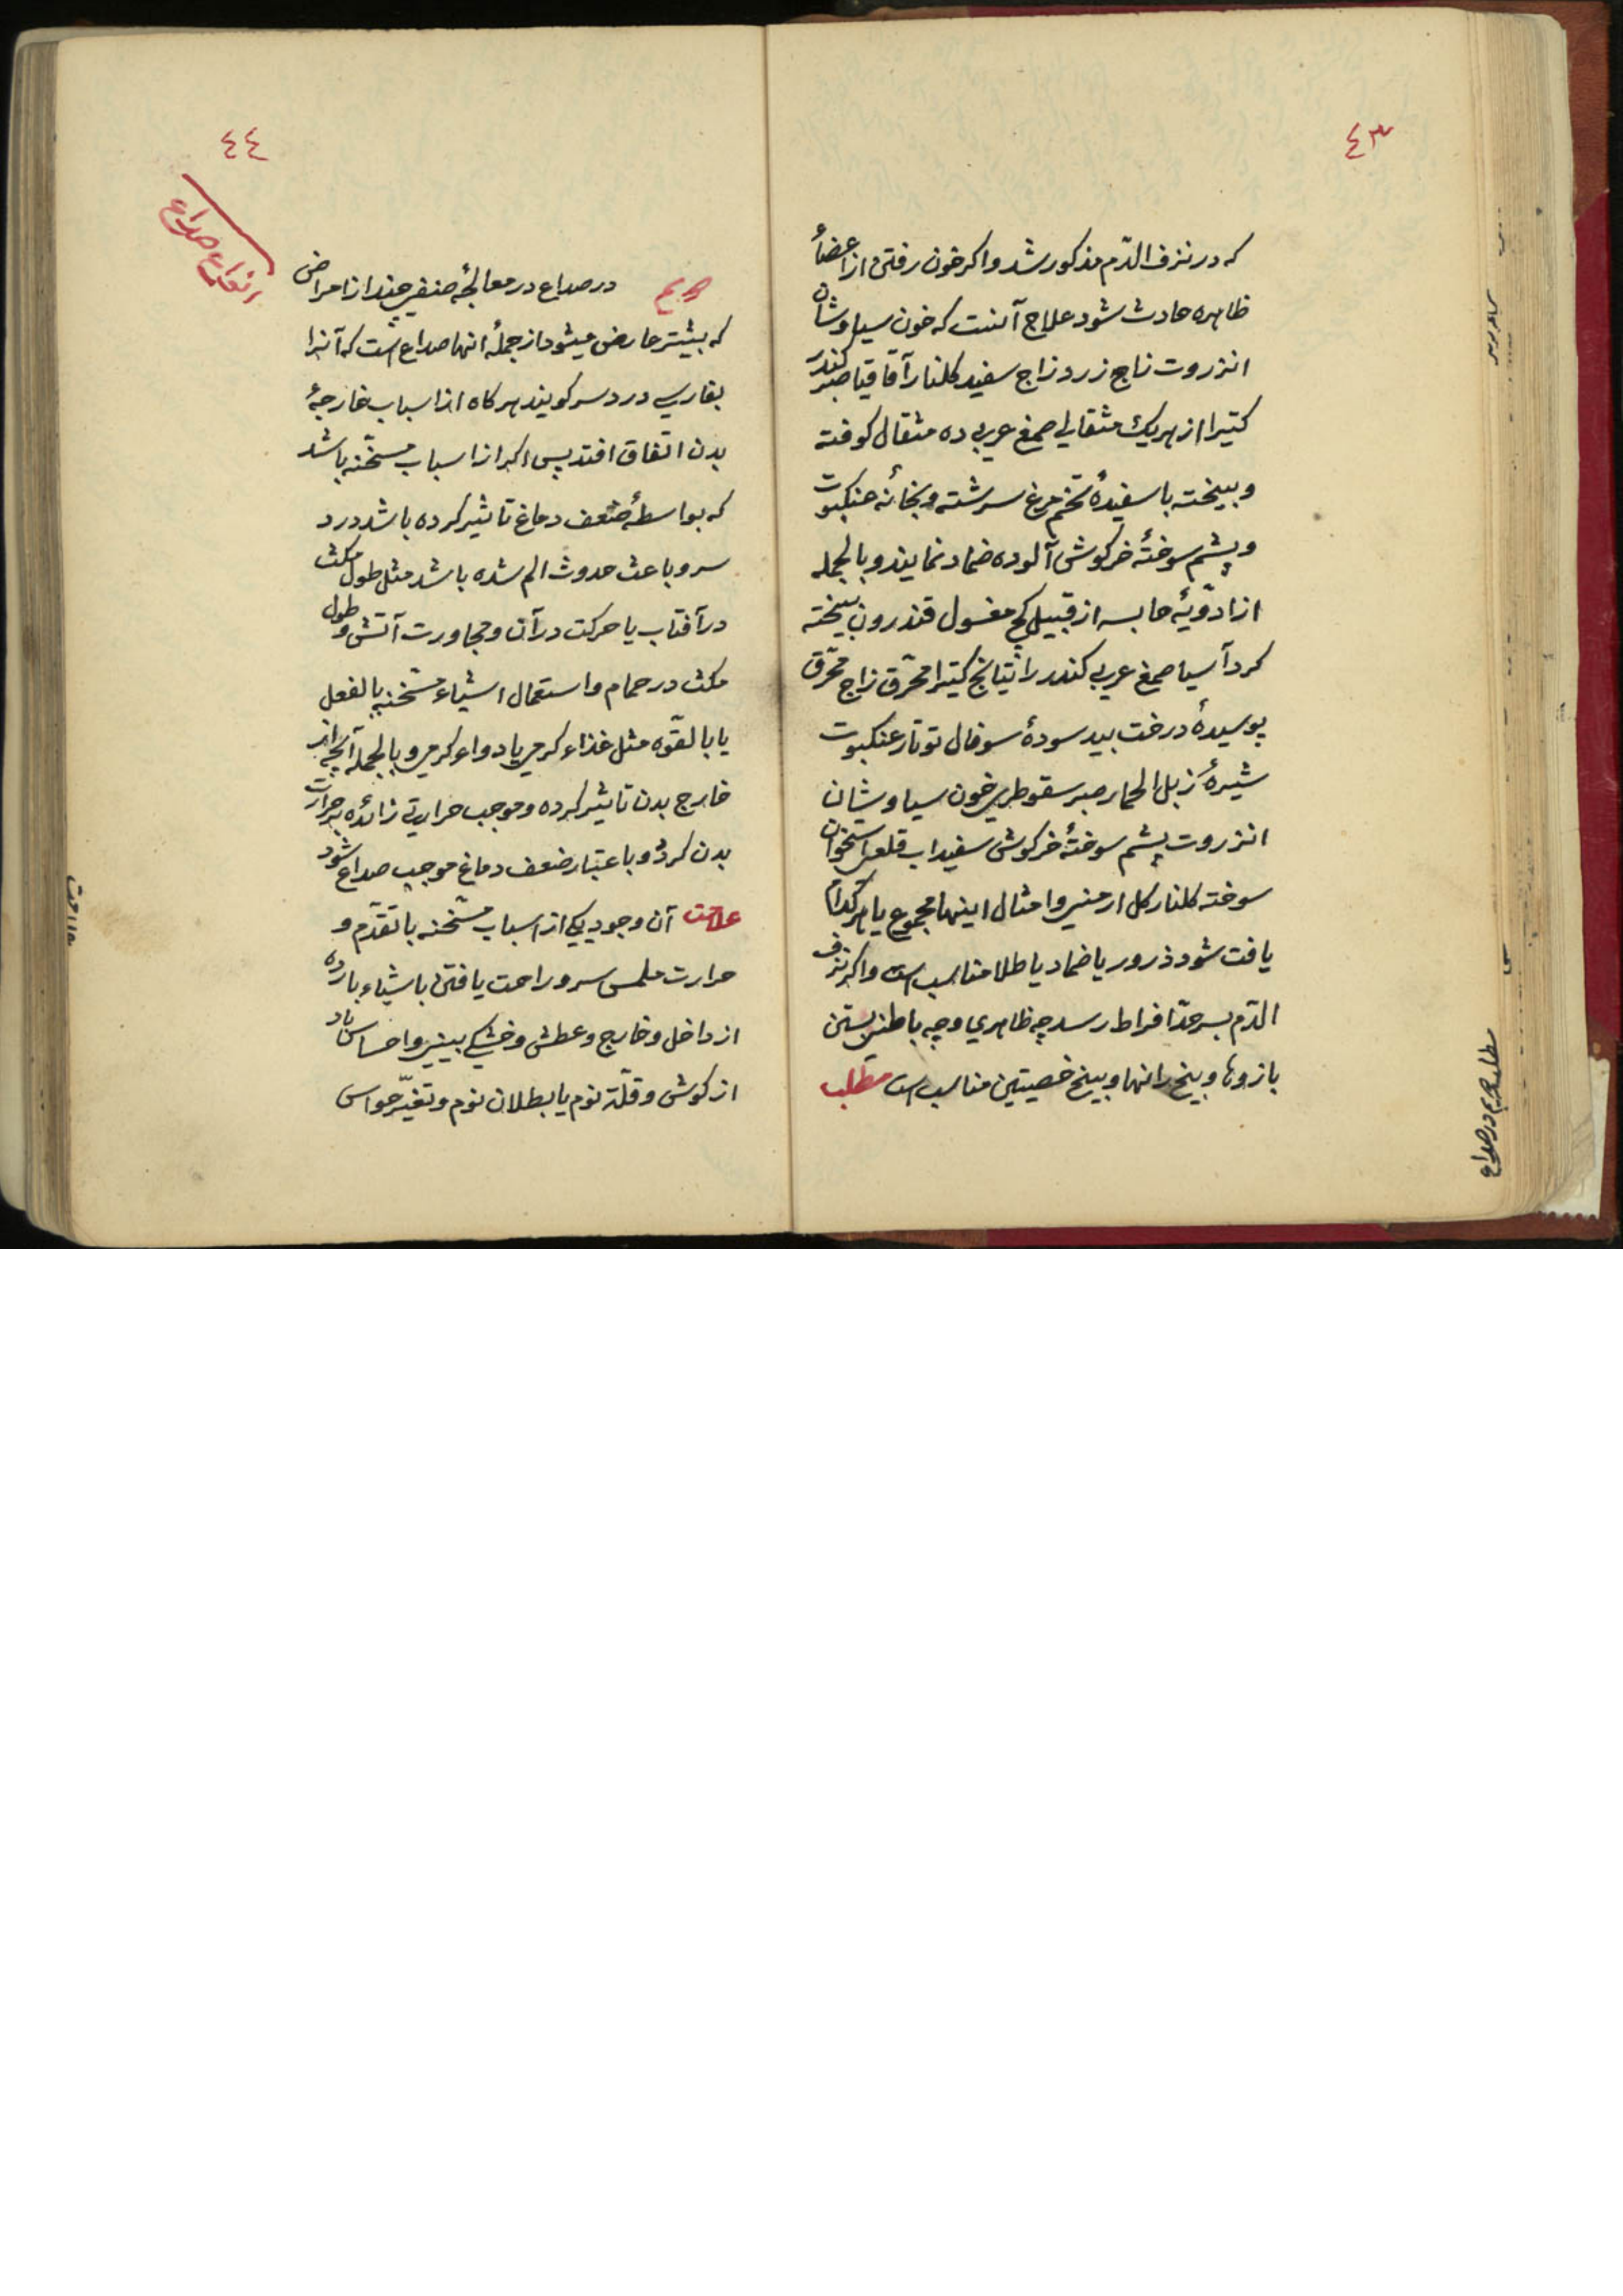 ٤٣
که در نزف الدّم مذکور شد و اکر خون رفتن از اعضأ
ظاهره حادث شود علاج آنست که خون سیاوشان
انزروت زاج زرد زاج سفید کلنار آقاقیا صبر کندر
کتیرا از هریك مثقالی صمغ عربی ده مثقال کوفته
و بیخته با سفیدۀ تخم مرغ سرشته و بخأنه عنکبوت
و پشم سوختۀ خرکوش آلوده ضماد نمایند و بالجمله
از ادوّیۀ حابسه از قبیل کچ مغسول قندرون بیخته
کرد آسیا صمغ عربی کندر راتیانج کتیرا محرّق زاج محرّق
پوسیدۀ درخت بید سودۀ سوفال نو تار عنکبوت
شیرۀ زبل الحمار صبر سقوطری خون سیاوشان
انزروت پشم سوختۀ خرکوش سفیداب قلعی استخوان
سوخته کلنار کل ارمنی و امثال اینها مجموع یا هر کدام
یافت شود ذرور یا ضماد یا طلا مناسب است و اکر نزف
الدّم بسر حدّ افراط رسد چه ظاهری و چه باطنی بستن
بازوها و بیخ رانها و بیخ خصیتین مناسب است مطلب
٤٤
انواع صداع
در صداع در معالجۀ صنفی چند از امراض
که بیشتر عارض میشود از جملۀ انها صداع است که آنرا
بفارسی درد سر کویند هرکاه از اسباب خارجۀ
بدن اتفاق افتد پس اکر از اسباب مسخّنه باشد
که بواسطۀ ضعف دماغ تاثیر کرده باشد درد
سر و باعث حدوث الم شده باشد مثل طول مکث
در آفتاب یا حرکت در آن و مجاورت آتش و طول
مکث در حمام و استعمال اشیاء مسخنه بالفعل
یا بالقوّه مثل غذاء کرمی یا دواء کرمی و بالجمله آنچه از
خارج بدن تاثیر کرده و موجب حرارت زائده بر حرارت
بدن کردد و باعتبار ضعف دماغ موجب صداع شود
علامت آن وجود یکی از اسباب مسخّنه با تقدّم و
حرارت ملمس سر و راحت یافتن باشیاء بارده
از داخل و خارج و عطش و خشکی بینی و احساس باد
از کوش و قلّة نوم یا بطلان نوم و تغیّر حواس